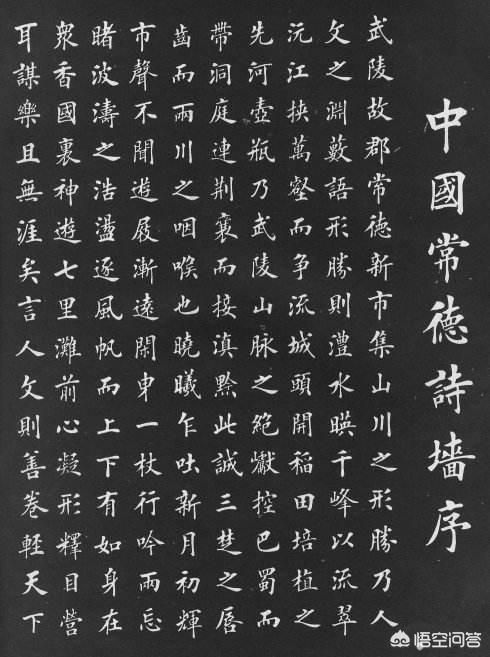 中國常德詩墻序
武陵故郡常德新市集山川之形勝乃人
文之淵藪語形勝則澧水暎千峰以流翠
沅江挾萬壑而争流城頭開稻田培植之
先河壺瓶乃武陵山脉之絶巘控巴蜀而
帶洞庭連荆襄而接滇黔此誠三楚之唇
齒而兩川之咽喉也曉曦乍吐新月初輝
市聲不聞遊屐漸遠閑身一杖行吟兩忘
睹波濤之浩盪逐風帆而上下有如身在
衆香國裏神遊七里灘前心凝形釋目營
耳謀樂且無涯矣言人文則善卷輕天下
悟空问答